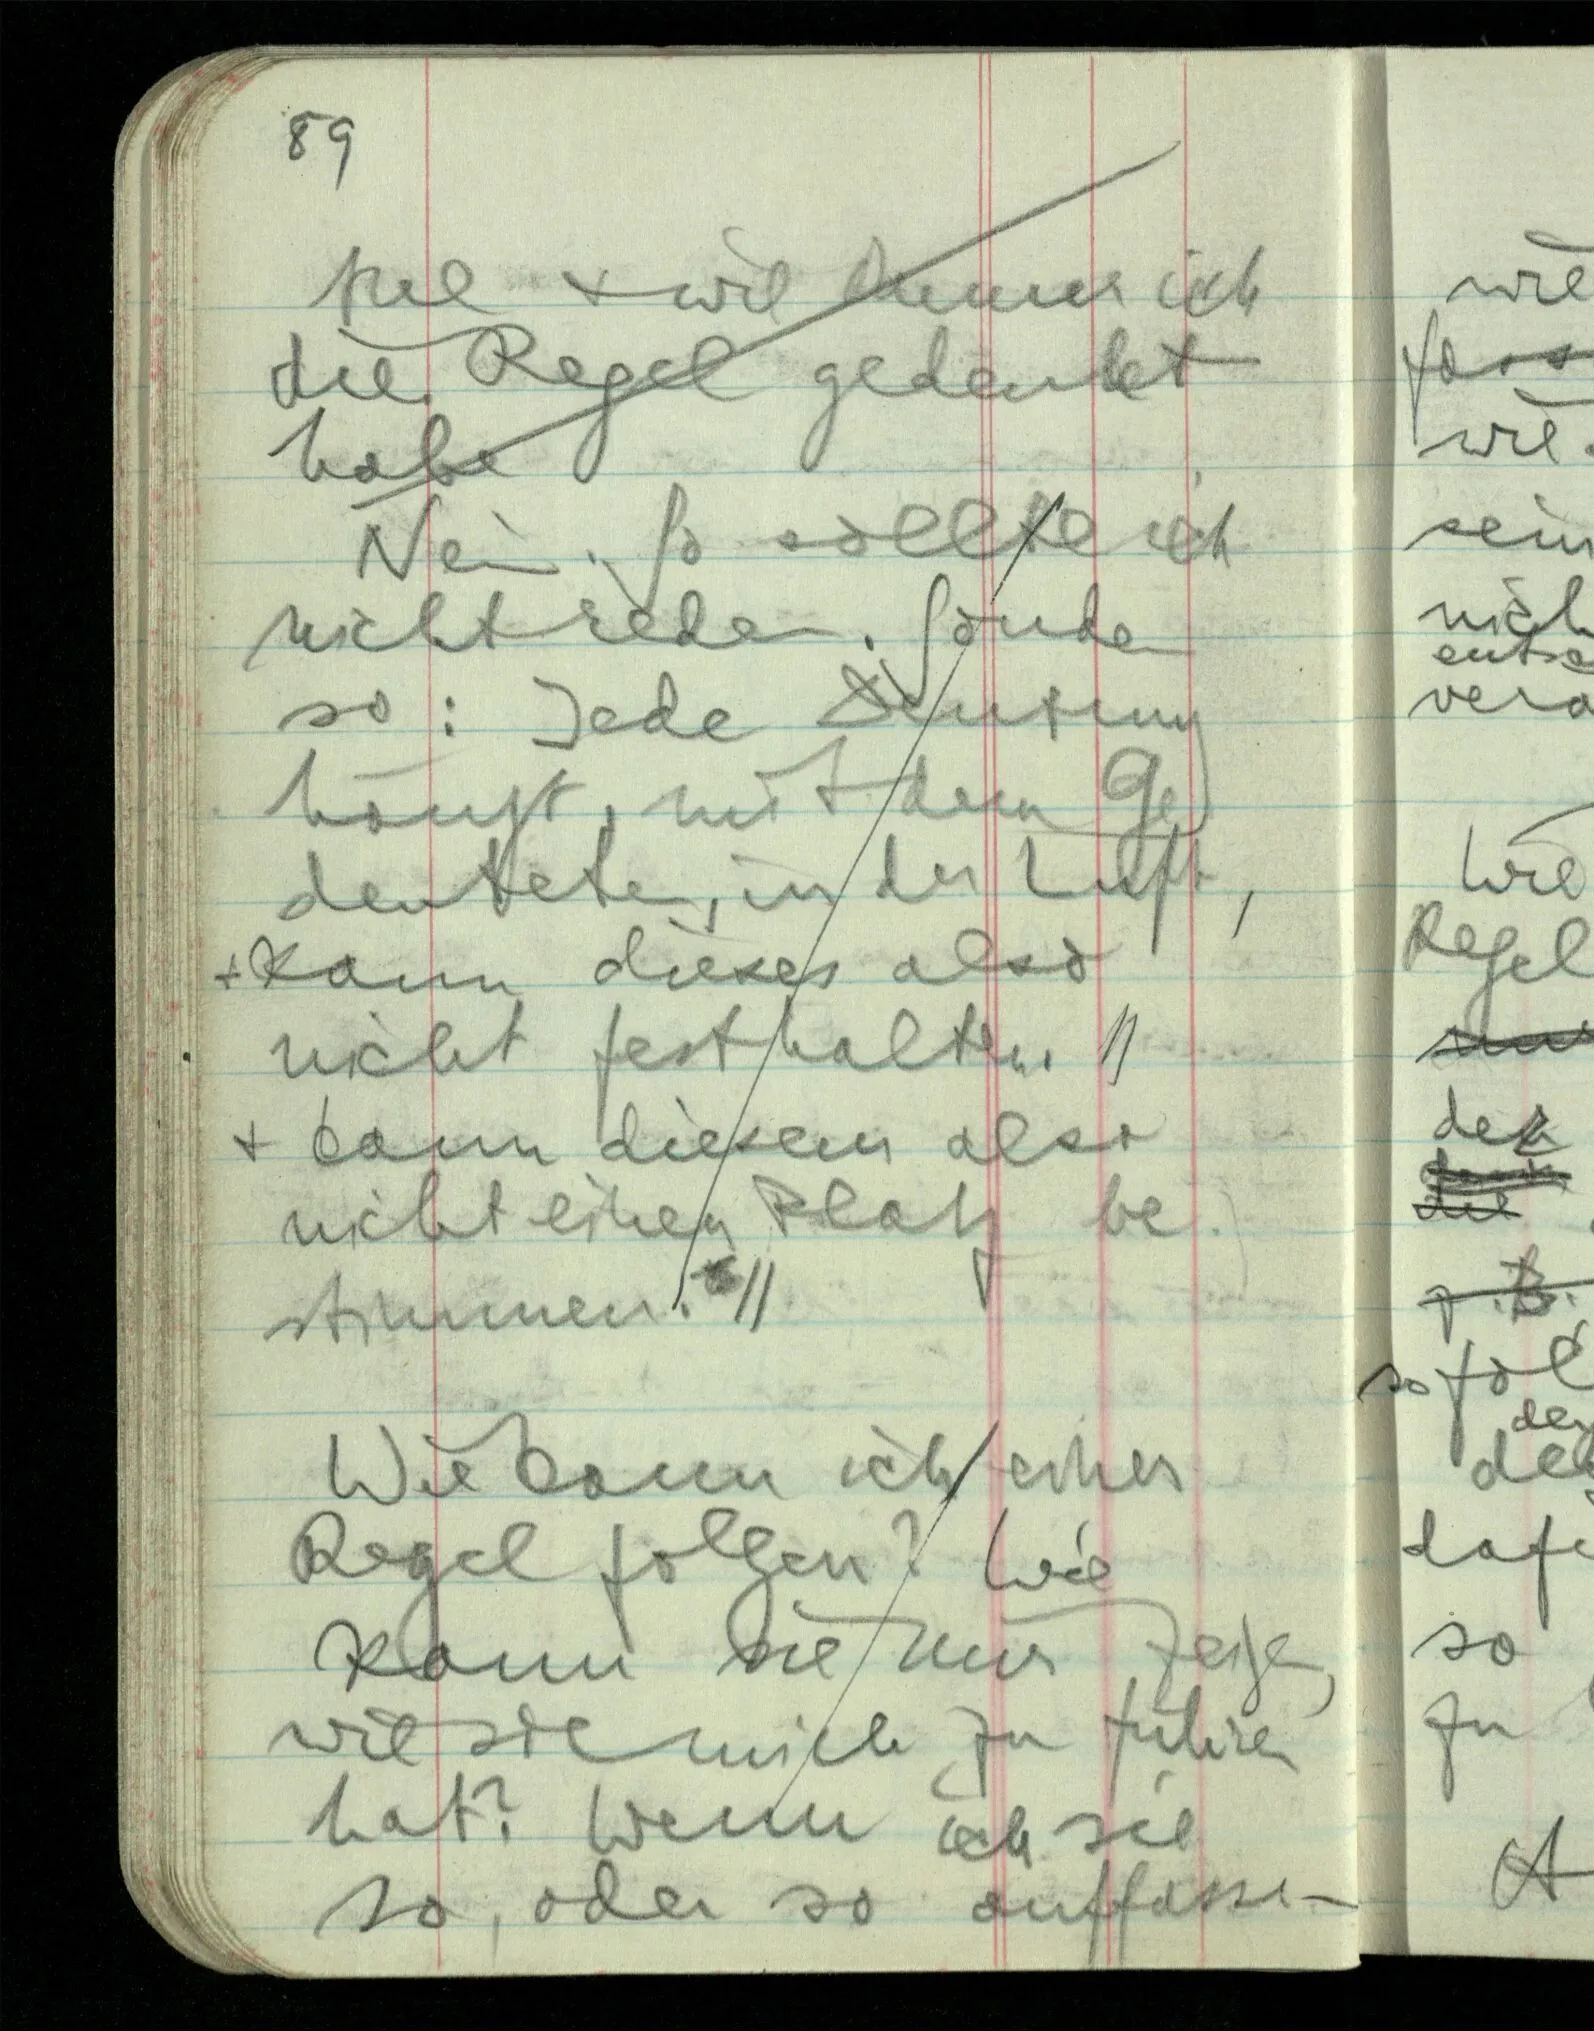 89
piel + wie immer ich
die Regel gedeutet
habe
Nein. So sollte ich
nicht reden. Sondern
so: Jede Deutung
hängt, mit dem Ge
deuteten, in der Luft,
+ kann dieses also
nicht festhalten. //
+ kann diesem also
nicht einen Platz be
stimmen. //
Wie kann ich einer
Regel folgen? Wie
kann sie mir zeigen,
wie sie mich zu führen
hat? Wenn ich sie
so, oder so auffasse –
wie
wie
sein
Wie
Regel
der
die
z.B.
so fol
dafü
so
zu
A